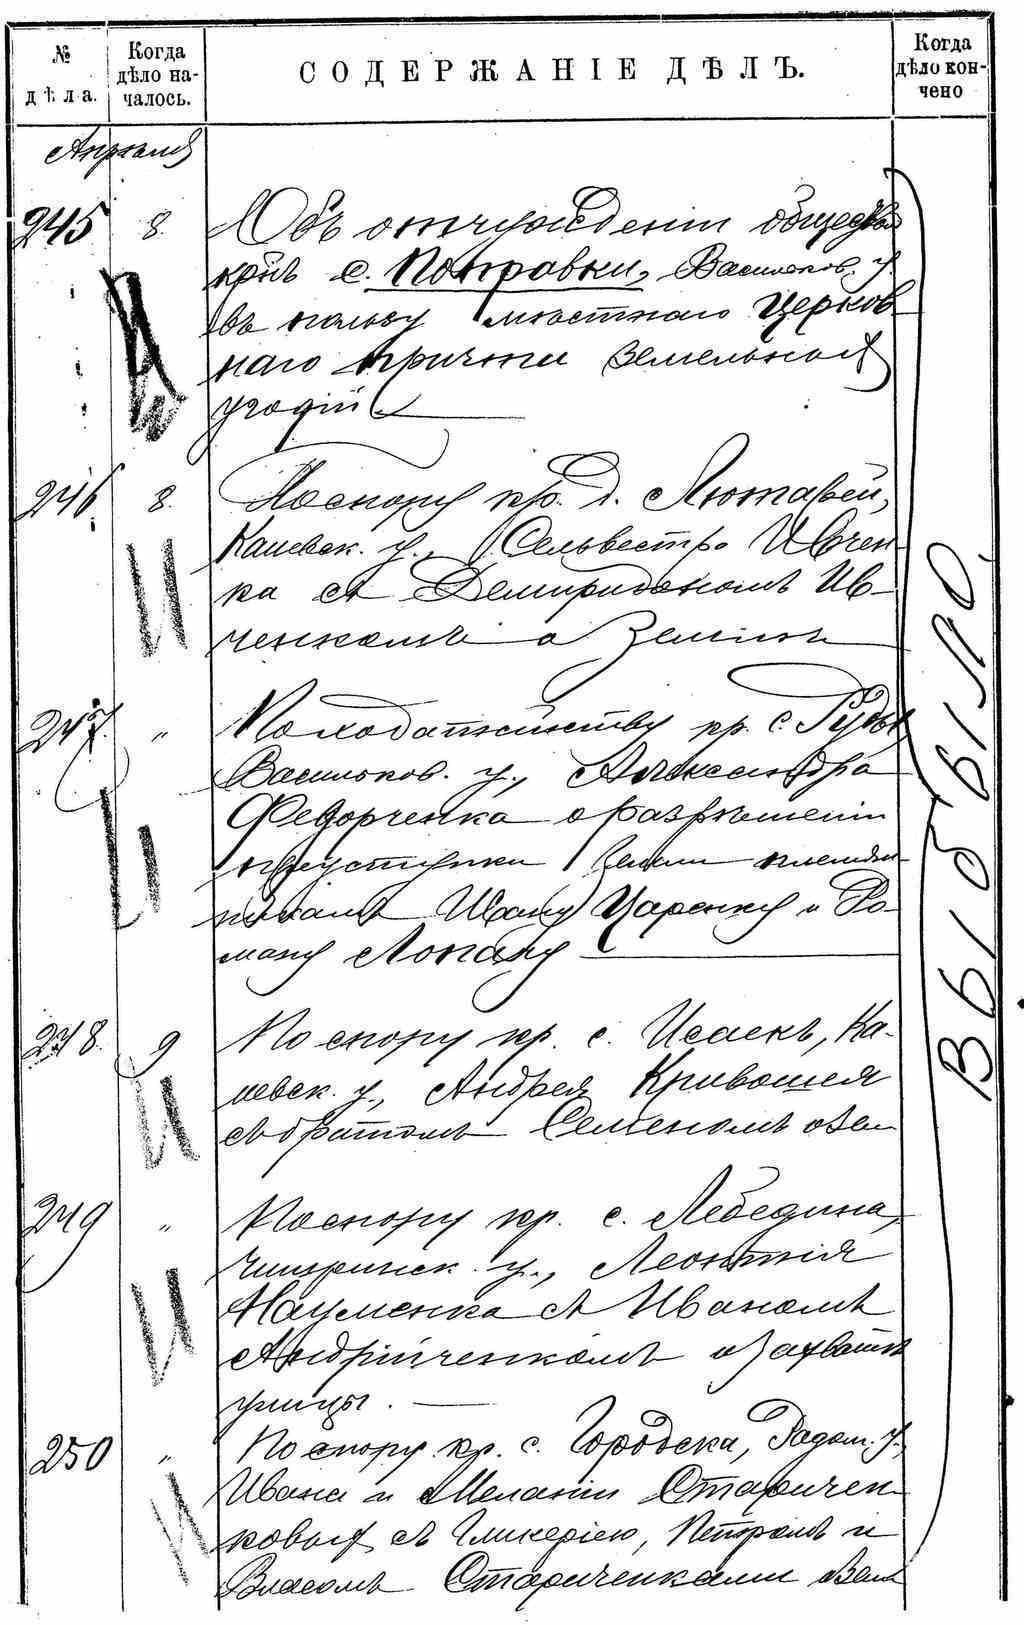 № дѣла.
Когда дѣло на-
чалось.
СОДЕРЖАНІЕ ДѢЛЪ.
Когда дѣло кон-
чено
Апрѣля
245 8. Объ отчужденіи обществом
крнъ с. Потравки, Васильков. у.
въ пользу мѣстнаго церков-
наго причта земельных
угодій
246 8. По спору кр. д. Лютарей,
Каневск. у., Сельвестра Ивчен-
ка съ Ивченкомъ о землѣ
247. " По ходатайству кр. с. Руды,
Васильков. у., Александра
Федорченка о разрѣшеніи
переуступки земли племян-
никамъ Ивану Царенку и Ро-
ману Лопану
248. 9 По спору кр. с. Исаекъ, Ка-
невск. у., Андрея Кривошея
съ братомъ Семеномъ о зем
249 " По спору кр. с. Лебедина,
Чигиринск. у., Леонтія
Науменка съ Иваномъ
Андрійченкомъ о захватѣ
улицы.
250 " По спору кр. с. Городска, Радом. у.,
Ивана и Меланіи Старичен-
ковых съ Гликеріею, Петромъ и
Власомъ Стариченками о зем
И
И
И
И
И
И
ВЫБЫЛО.